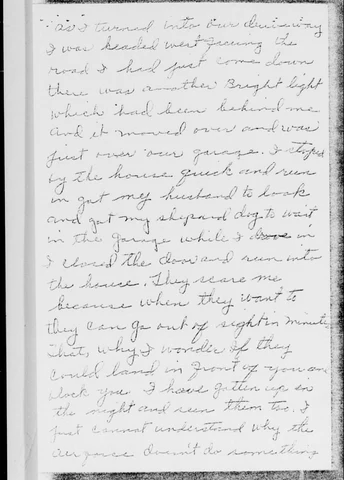 as I turned into our driveway
I was headed west facing the
road I had just come down
there was another Bright light
which had been behind me
and it moved over and was
just over our garage. I stoped
by the house quick and run
in got my husband to look
and got my shepard dog to wait
in the garage while I drove in
I closed the door and run into
the house. They scare me
because when they want to
they can go out of sight in minute
that, why I wonder if they
could land in front of you and
block you. I have gotten up in
the night and seen them too. I
just cannot understand why the
air force doesn't do something